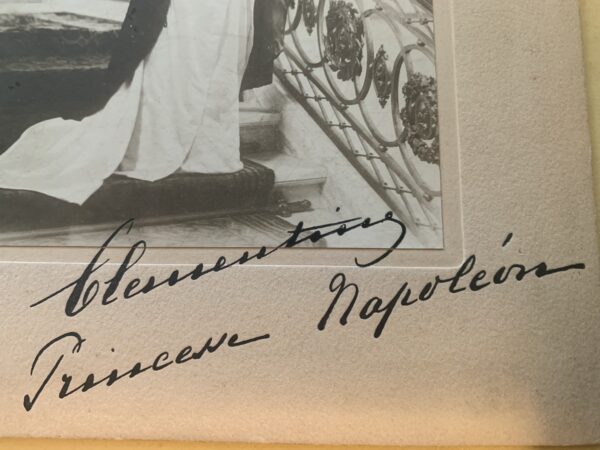 Clementine
Princesse Napoléon